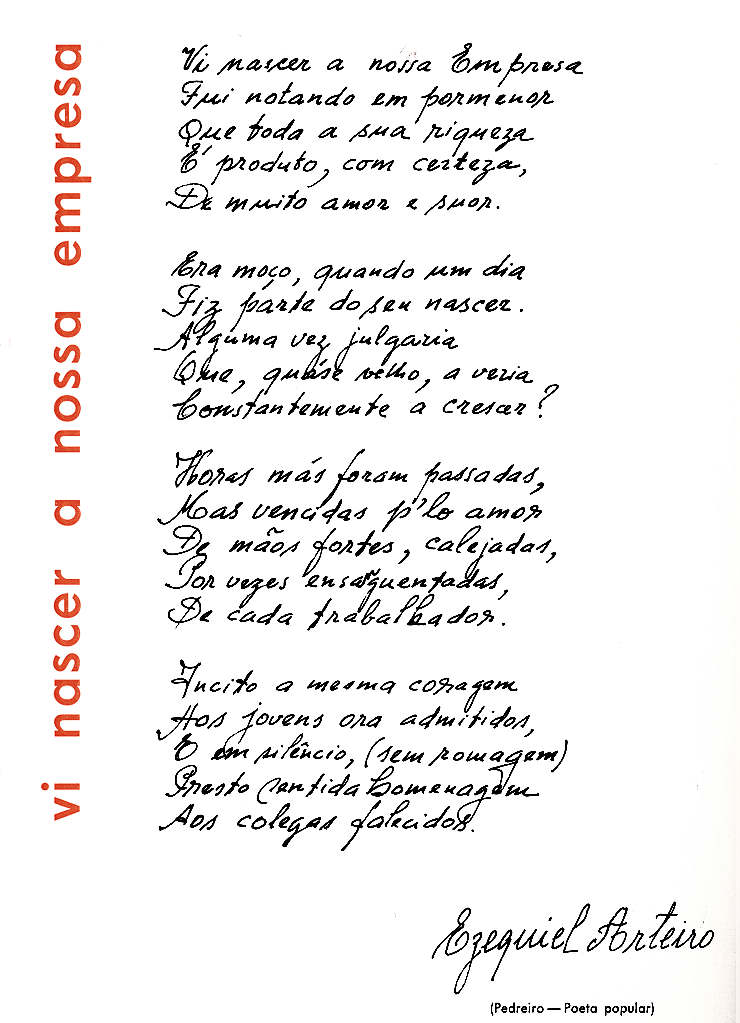 vi nascer a nossa empresa
Vi nascer a nossa Empresa
Fui notando em pormenor
Que toda a sua riqueza
É produto, com certeza,
De muito amor e suor.
Era moço, quando um dia
Fiz párte do seu nascer.
Alguma vez julgaria
Que, quáse velho, a veria
Constantemente a crescer?
Horas más foram passadas,
Mas vencidas p'lo amor
De mãos fortes, calejadas,
Por vezes ensanguentadas,
De cada trabalhador.
Incito a mesma coragem
Aos jovens ora admitidos,
E em silêncio, (sem romagem)
Presto sentida homenagem
Aos colegas falecidos.
Ezequiel Arteiro
(Pedreiro — Poeta popular)